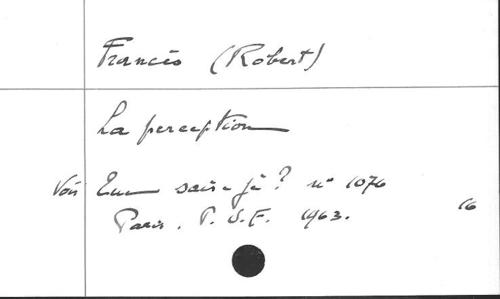 Francès (Robert)
La perception
Voir Que sais-je? n° 1076
Paris. P.U.F. 1963.
16